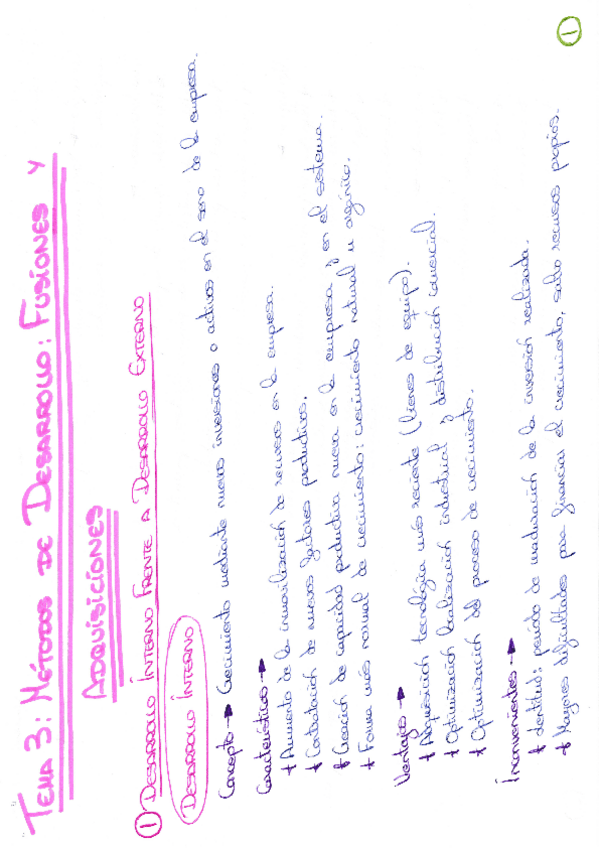 1
TEMA 3: MÉTODOS DE DESARROLLO: FUSIONES Y
ADQUISICIONES
1 DESARROLLO INTERNO FRENTE A DESARROLLO EXTERNO
DESARROLLO INTERNO
Concepto → Crecimiento mediante nuevas inversiones o activos en el seno de la empresa.
Características →
+ Aumento de la inmovilización de recursos en la empresa.
+ Contratación de nuevos factores productivos.
+ Creación de capacidad productiva nueva en la empresa y en el sistema.
+ Forma más normal de crecimiento: crecimiento natural u orgánico.
Ventajas →
+ Adquisición tecnológica más reciente (bienes de equipo).
+ Optimización localización industrial y distribución comercial.
+ Optimización del proceso de crecimiento.
Inconvenientes →
+ Lentitud: periodo de maduración de la inversión realizada.
+ Mayores dificultades para financiar el crecimiento, salvo recursos propios.